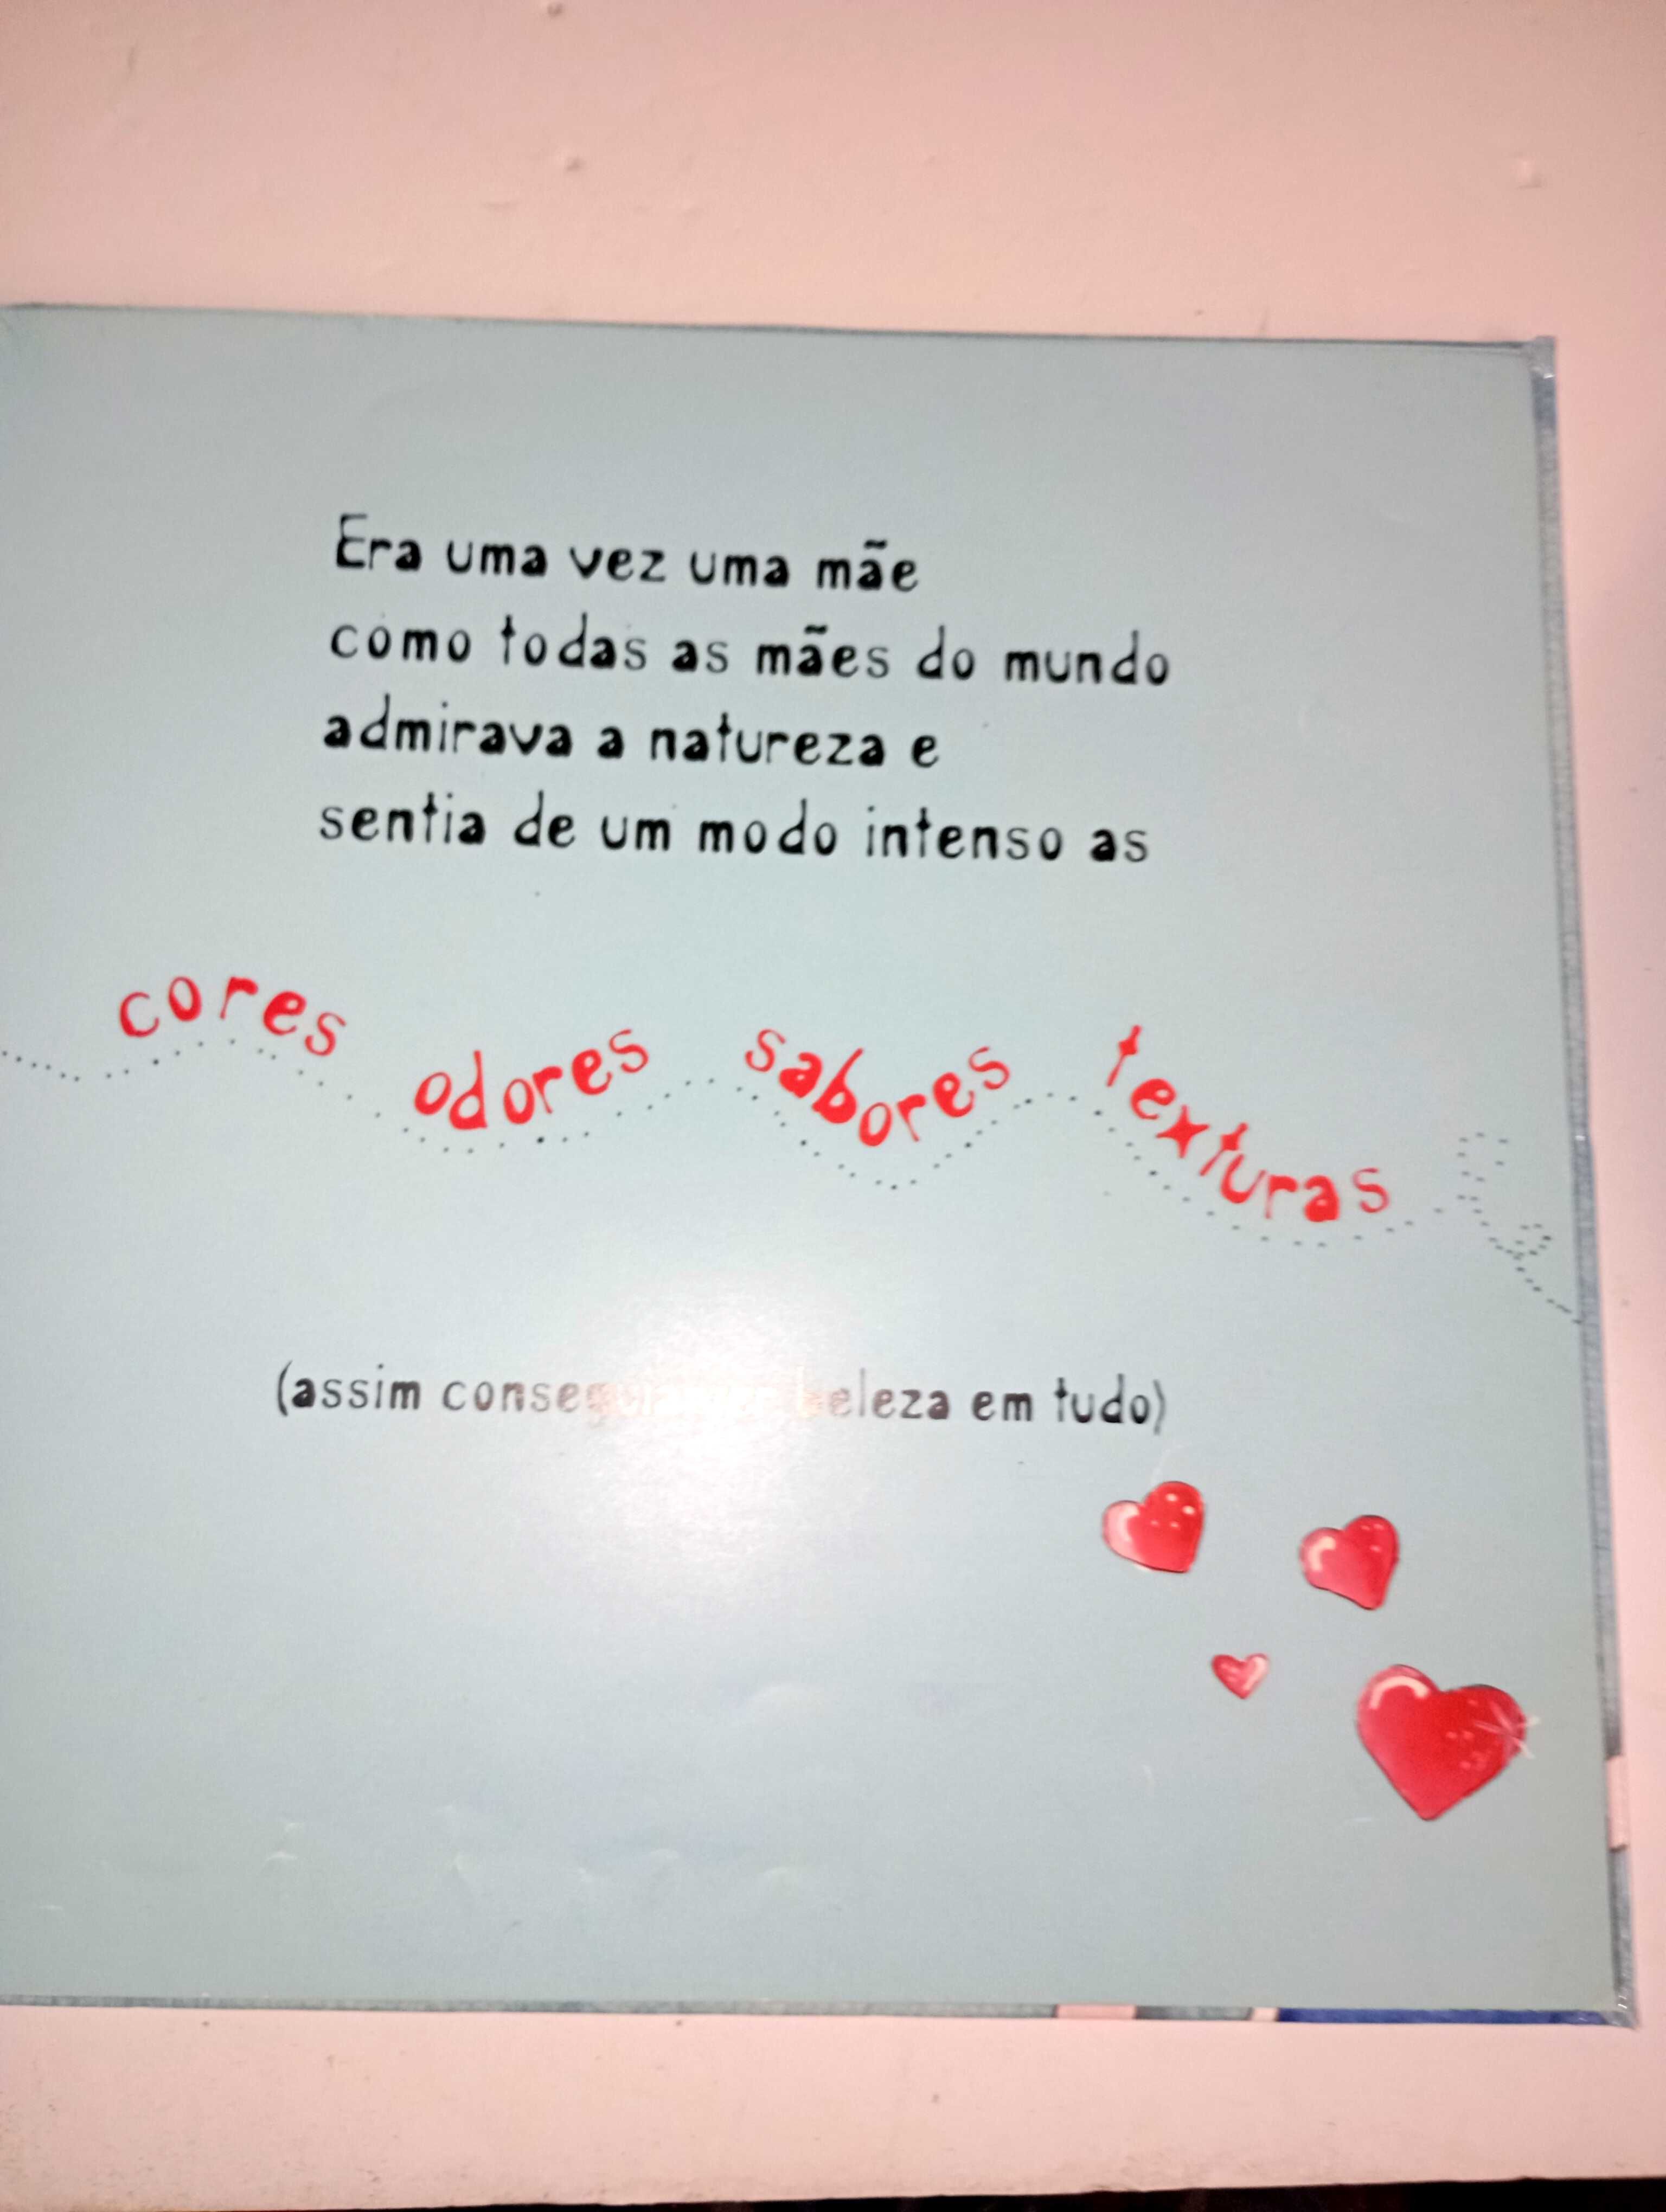 Era uma vez uma mãe
como todas as mães do mundo
admirava a natureza e
sentia de um modo intenso as
cores odores sabores texturas
(assim beleza em tudo)